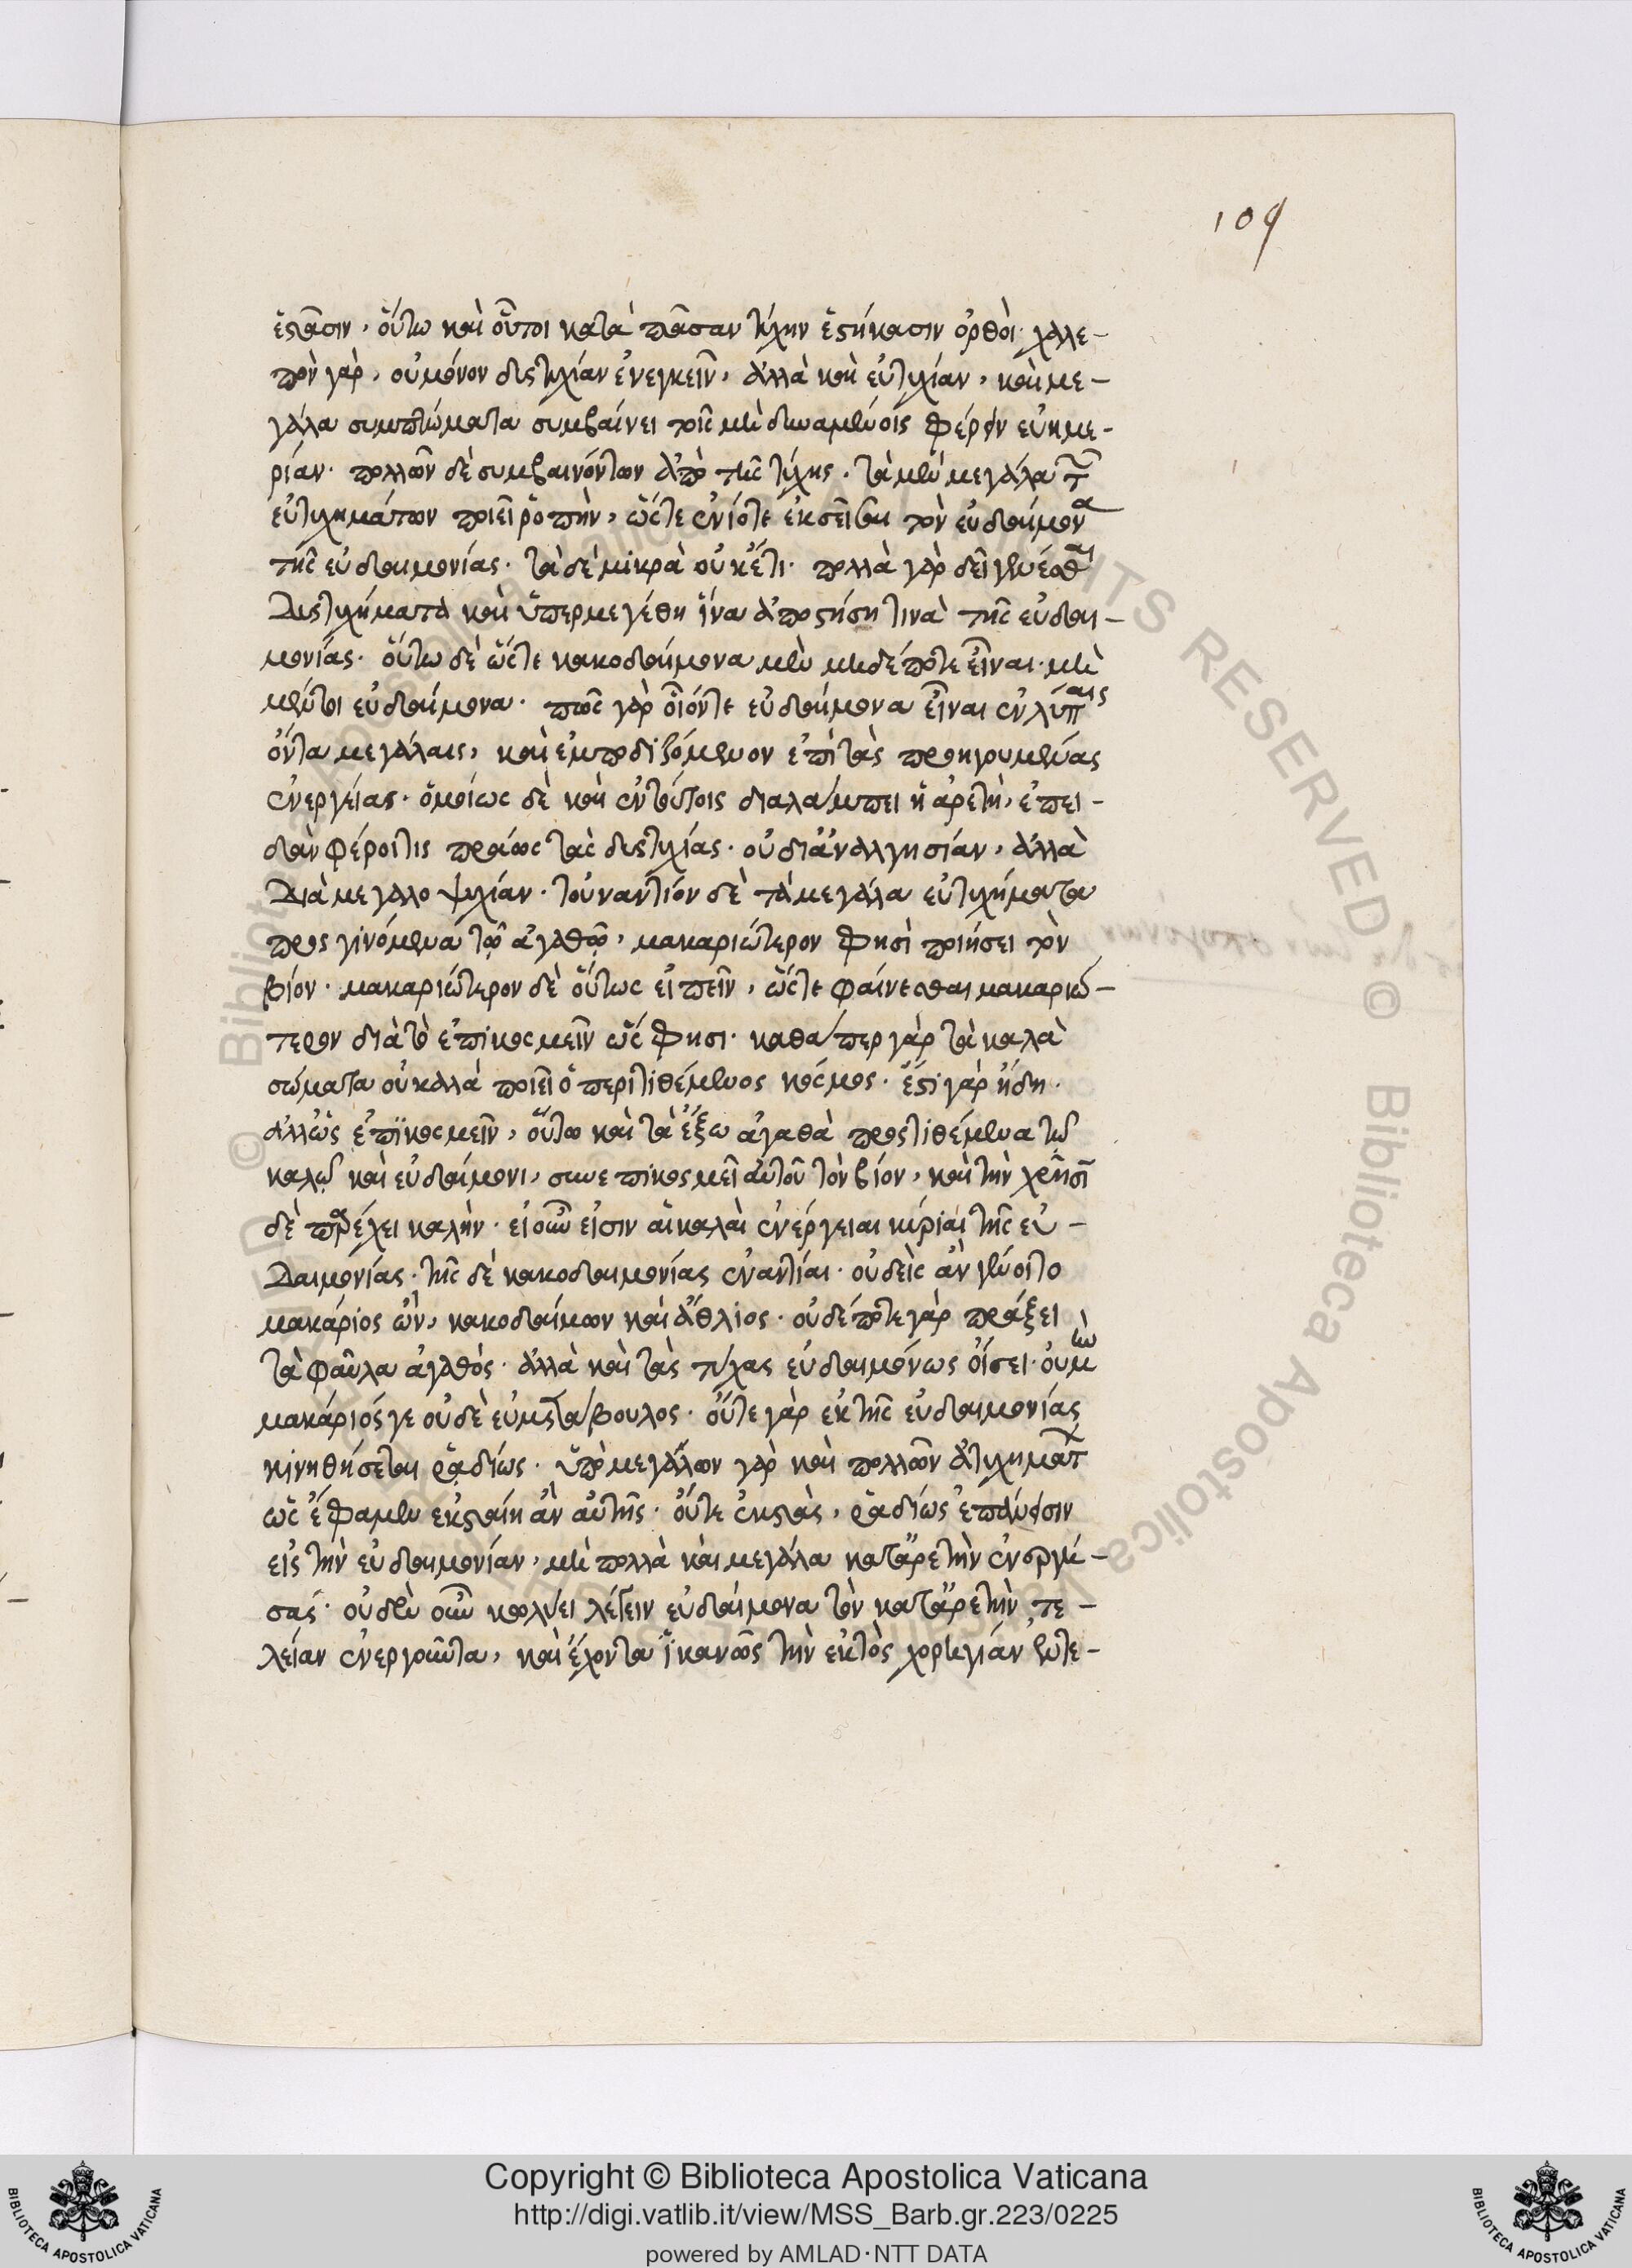 109
ἑστᾶσιν, οὕτω καὶ οὗτοι κατὰ πᾶσαν τύχην ἑστήκασιν ὀρθοί· χαλε-
πὸν γὰρ, οὐ μόνον δυστυχίαν ἐνεγκεῖν, ἀλλὰ καὶ εὐτυχίαν, καὶ με-
γάλα συμπτώματα συμβαίνει τοῖς μὴ δυναμένοις φέρειν εὐημε-
ρίαν. πολλῶν δὲ συμβαινόντων ἀπὸ τῆς τύχης. τὰ μὲν μεγάλα τῶν
εὐτυχημάτων ποιεῖ ῥοπὴν, ὥστε ἐνίοτε ἐκσεῖσαι τὸν εὐδαίμονα
τῆς εὐδαιμονίας. τὰ δὲ μικρὰ οὐκέτι. πολλὰ γὰρ δεῖ γενέσθαι
δυστυχήματα καὶ ὑπερμεγέθη ἵνα ἀποστήσῃ τινὰ τῆς εὐδαι-
μονίας. οὕτω δὲ ὥστε κακοδαίμονα μὲν μηδέποτε εἶναι. μὴ
μέντοι εὐδαίμονα. πῶς γὰρ οἷόντε εὐδαίμονα εἶναι ἐν λύπαις
ὄντα μεγάλαις, καὶ ἐμποδιζόμενον ἐπὶ τὰς προηγουμένας
ἐνεργείας. ὁμοίως δὲ καὶ ἐν τούτοις διαλάμπει ἡ ἀρετὴ, ἐπει-
δὰν φέροι τις πράως τὰς δυστυχίας. οὐ δι' ἀναλγησίαν, ἀλλὰ
διὰ μεγαλοψυχίαν. τοὐναντίον δὲ τὰ μεγάλα εὐτυχήματα
προσγινόμενα τῷ ἀγαθῷ, μακαριώτερον φησὶ ποιήσει τὸν
βίον. μακαριώτερον δὲ οὕτως εἰπεῖν, ὥστε φαίνεσθαι μακαριώ-
τερον διὰ τὸ ἐπικοσμεῖν ὥς φησι. καθάπερ γὰρ τὰ καλὰ
σώματα οὐ καλὰ ποιεῖ ὁ περιτιθέμενος κόσμος. ἔστι γὰρ ἤδη.
ἀλλ' ὡς ἐπικοσμεῖν, οὕτω καὶ τὰ ἔξω ἀγαθὰ προστιθέμενα τῷ
καλῷ καὶ εὐδαίμονι, συνεπικοσμεῖ αὐτοῦ τὸν βίον, καὶ τὴν χρῆσιν
δὲ παρέχει καλήν. εἰ οὖν εἰσιν αἱ καλαὶ ἐνέργειαι κύριαι τῆς εὐ-
δαιμονίας. τῆς δὲ κακοδαιμονίας ἐναντίαι. οὐδεὶς ἂν γένοιτο
μακάριος ὢν, κακοδαίμων καὶ ἄθλιος. οὐδέποτε γὰρ πράξει
τὰ φαῦλα ἀγαθός. ἀλλὰ καὶ τὰς τύχας εὐδαιμόνως οἴσει. οὐ μὴν
μακάριός γε οὐδὲ εὐμετάβουλος. οὔτε γὰρ ἐκ τῆς εὐδαιμονίας
κινηθήσεται ῥαδίως. ὑπὸ μεγάλων γὰρ καὶ πολλῶν ἀτυχημάτων
ὡς ἔφαμεν ἐκσταίη ἂν αὐτῆς. οὔτε ἐκστὰς, ῥαδίως ἐπάνεισιν
εἰς τὴν εὐδαιμονίαν, μὴ πολλὰ καὶ μεγάλα κατ' ἀρετὴν ἐνεργή-
σας. οὐδὲν οὖν κωλύει λέγειν εὐδαίμονα τὸν κατ' ἀρετὴν τε-
λείαν ἐνεργοῦντα, καὶ ἔχοντα ἱκανῶς τὴν ἐκτὸς χορηγίαν
Copyright © Biblioteca Apostolica Vaticana
http://digi.vatlib.it/view/MSS_Barb.gr.223/0225
powered by AMLAD·NTT DATA